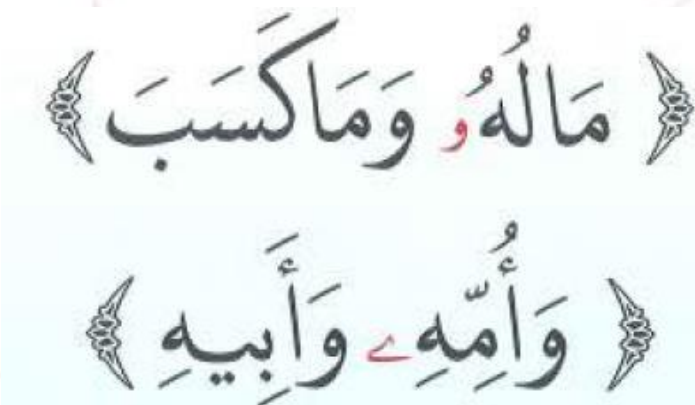 ﴿ مَالُهُۥ وَمَا كَسَبَ ﴾
﴿ وَأُمِّهِۦ وَأَبِيهِ ﴾